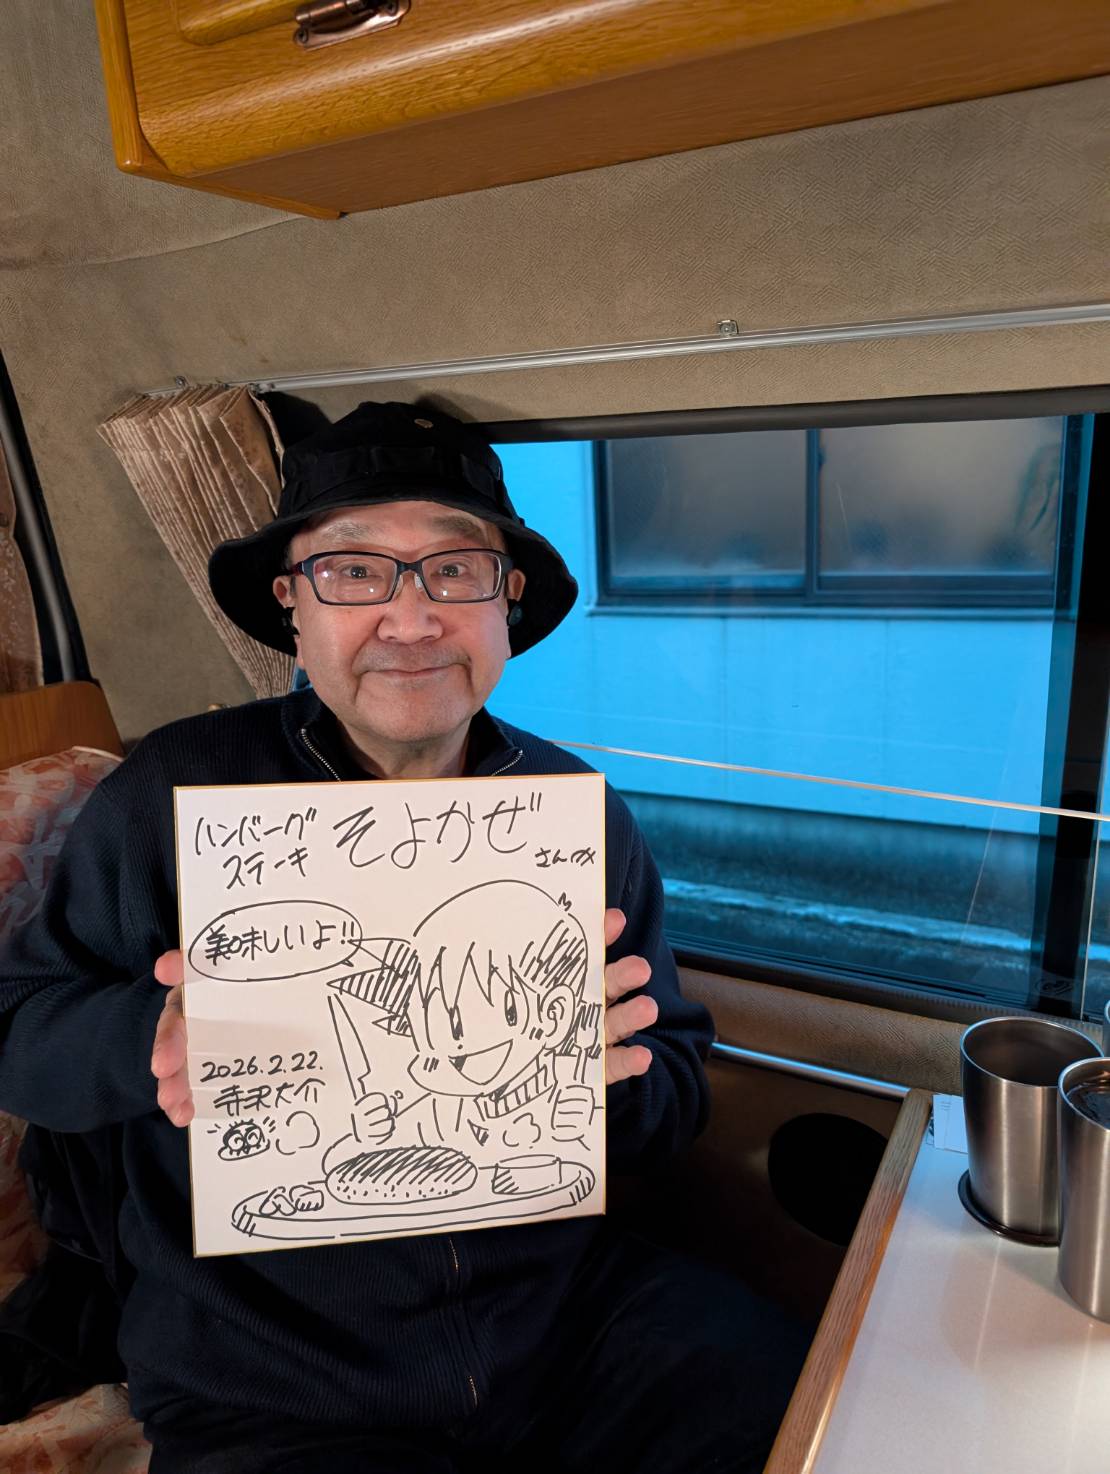 ハンバーグ
ステーキ
そよかぜ
さん江
美味しいよ!!
2026.2.22.
寺沢大介